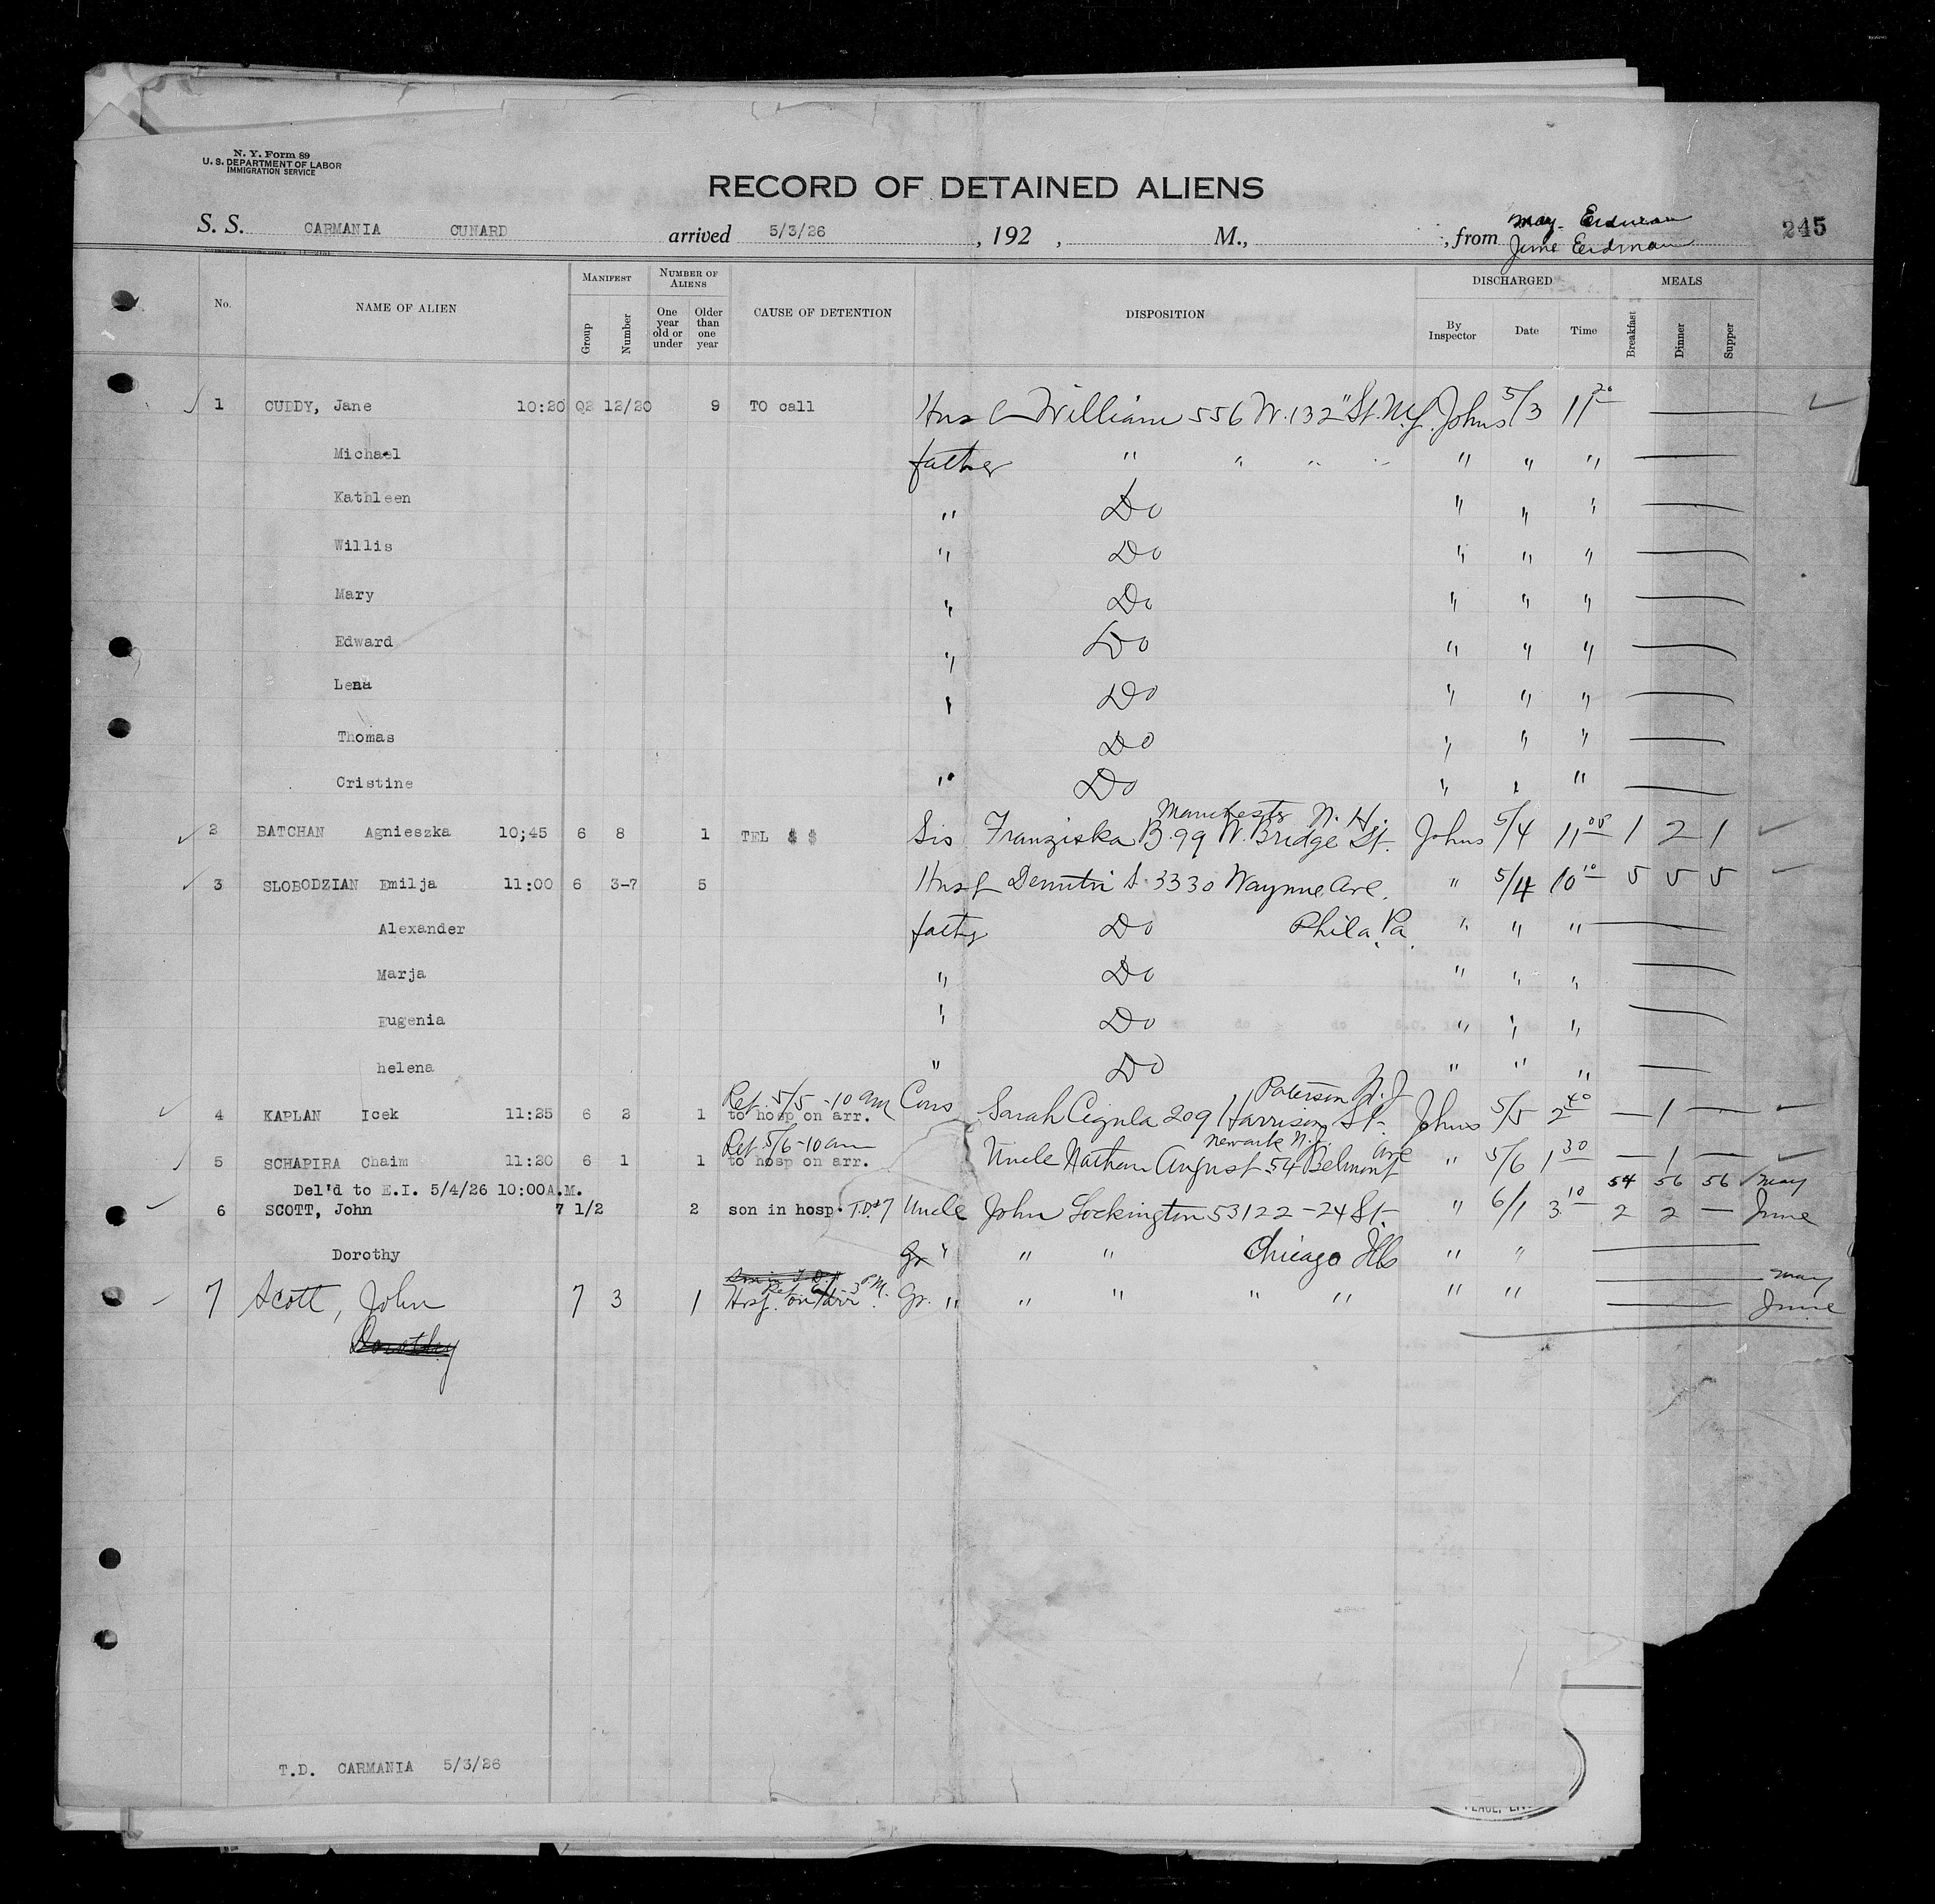 N. Y. Form 89
U. S. DEPARTMENT OF LABOR
IMMIGRATION SERVICE
RECORD OF DETAINED ALIENS
245
S. S. CARMANIA CUNARD arrived 5/3/26 , 192 , M., , from May. Erdman
June Erdman
No. NAME OF ALIEN MANIFEST NUMBER OF ALIENS CAUSE OF DETENTION DISPOSITION DISCHARGED MEALS
Group Number One year old or under Older than one year By Inspector Date Time Breakfast Dinner Supper
1 CUDDY, Jane 10:20 Q2 12/20 9 TO call Husb William 556 W. 132" St. N.Y. Johns 5/3 11 20
Michael father " " " " " " "
Kathleen " Do " " "
Willis " Do " " "
Mary " Do " " "
Edward " Do " " "
Lena " Do " " "
Thomas " Do " " "
Cristine " Do " " "
Manchester N. H.
2 BATCHAN Agnieszka 10;45 6 8 1 TEL $ $ Sis Franziska B. 99 W. Bridge St. Johns 5/4 11 05 1 2 1
3 SLOBODZIAN Emilja 11:00 6 3-7 5 Husb Demitri S. 3330 Wayne Ave. " 5/4 10 10 5 5 5
Alexander father Do Phila. Pa. " " "
Marja " Do " " "
Eugenia " Do " " "
helena " Do " " "
Ret 5/5 -10 am Paterson N. J
4 KAPLAN Icek 11:25 6 2 1 to hosp on arr. Cous Sarah 209 Harrison St. Johns 5/5 2 40 — 1 —
Ret 5/6-10 am Newark N.J.
5 SCHAPIRA Chaim 11:20 6 1 1 to hosp on arr. Uncle Nathan August 54 Belmont Ave " 5/6 1 30 — 1 —
Del'd to E.I. 5/4/26 10:00A.M. 54 56 56 May
6 SCOTT, John 7 1/2 2 son in hosp. T.D.#7 Uncle John Lockington 53122-24 St. " 6/1 3 10 2 2 — June
Dorothy Gr " " " Chicago Ills " "
May
7 Scott, John 7 3 1 Hosp. on arr. Gr. " " " " " " " June
Dorothy
T.D. CARMANIA 5/3/26